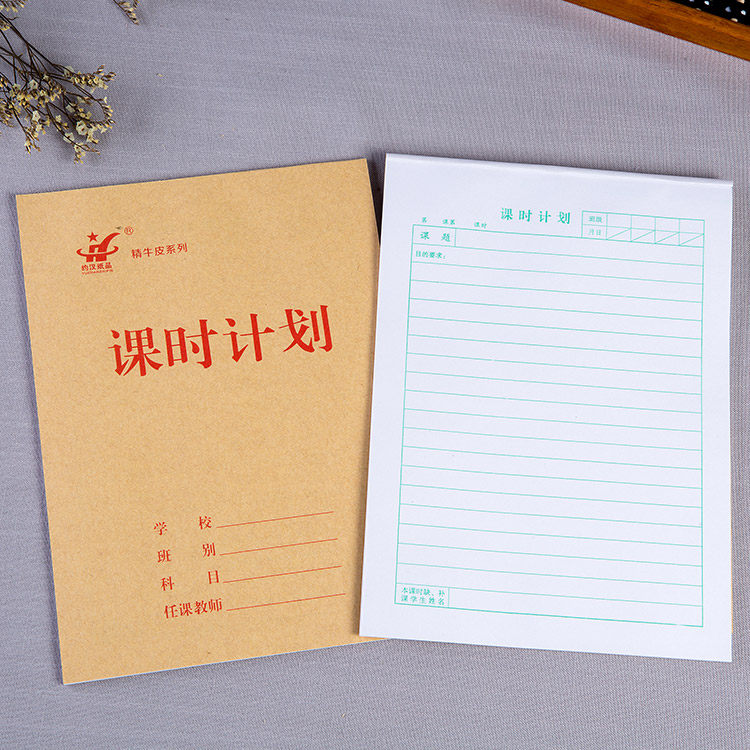 约汉纸品
®
精牛皮系列
课时计划
学 校
班 别
科 目
任课教师
第 课第 课时
课时计划
班级
月日
课 题
目的要求:
本课时缺、补
课学生姓名